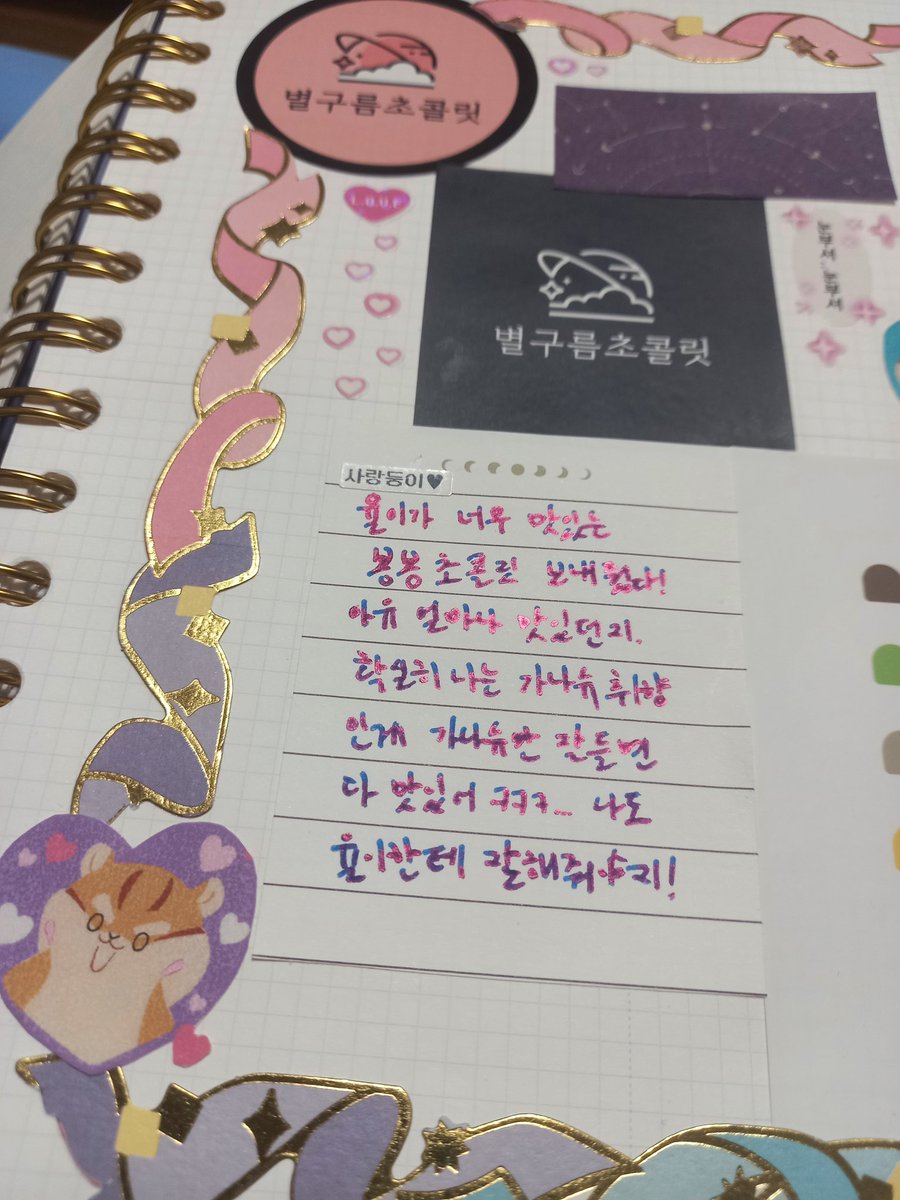 별구름초콜릿
L.O.V.E
눈부셔, 눈부셔
별구름초콜릿
사랑둥이♥
욜이가 너무 맛있는
봉봉초콜릿 보내줬다!
아유 얼마나 맛있던지.
확실히 나는 가나슈 취향
인게 가나슈만 잔들면
다 맛있어 ㅋㅋㅋ... 나도
욜이한테 잘해줘야지!